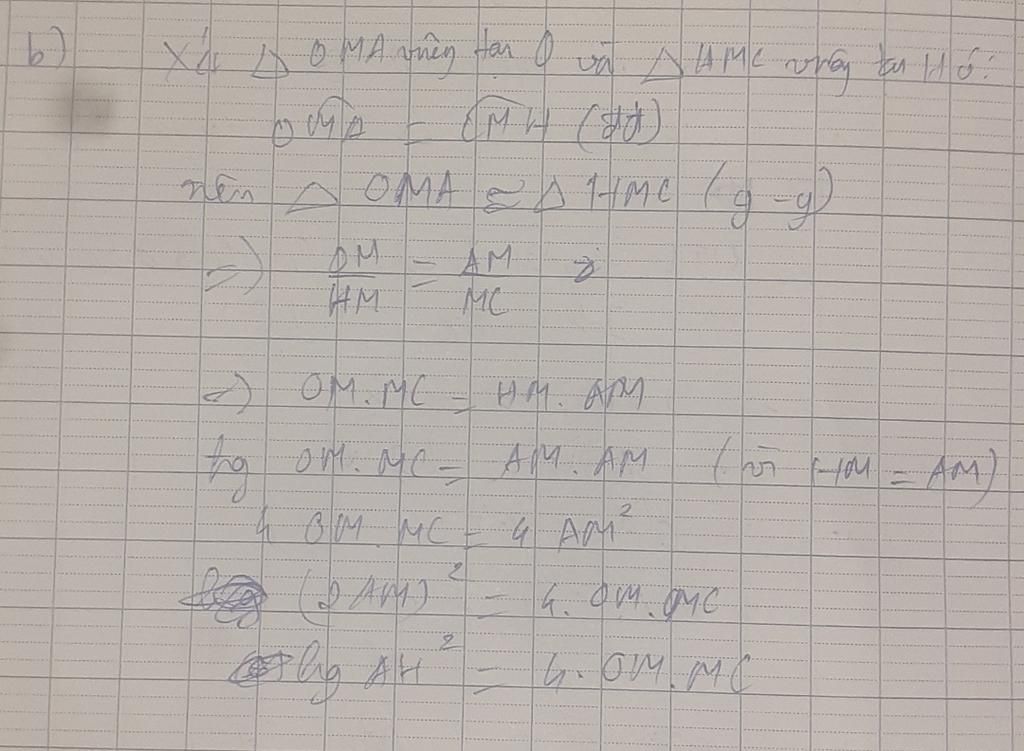 b) Xét Δ OMA vuông tại O và Δ HMC vuông tại H có:
OMA = CMH (đđ)
nên Δ OMA ≈ Δ HMC (g-g)
=> OM/HM = AM/MC
=> OM.MC = HM.AM
hg OM.MC = AM.AM (vì HM = AM)
4 OM.MC = 4 AM²
(2AM)² = 4.OM.MC
hg AH² = 4.OM.MC